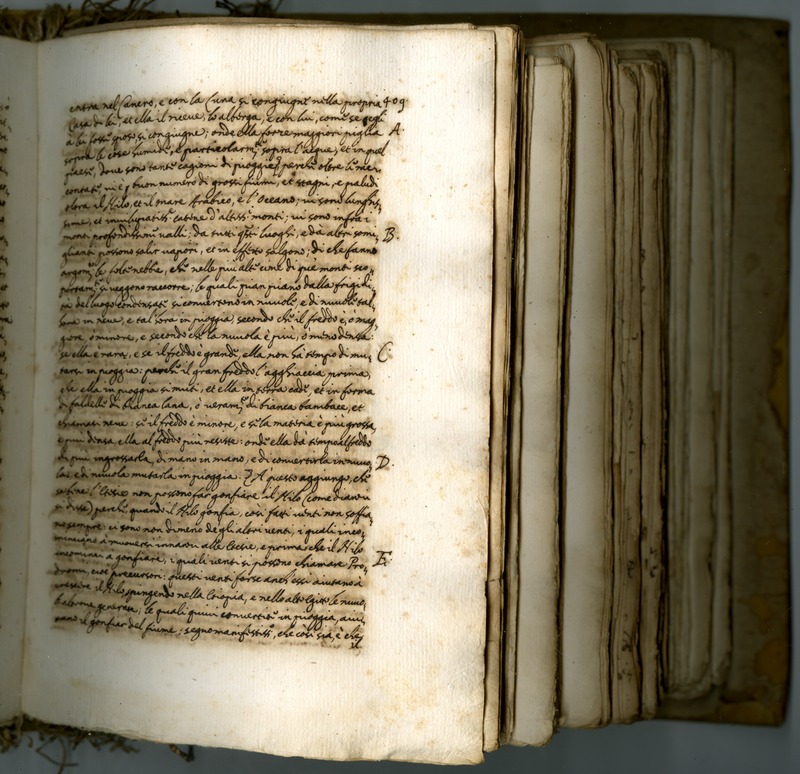 entra nel Cancro, e con la Luna si congiugne nella propria 409
Casa di lei, et ella il riceve, lo alberga, e con lui, come se egli
a lei fosse sposo si congiugne; onde ella forze maggiori piglia A.
sopra le cose humide, e particolarm.te sopra l'acque, et in quel
paese, dove sono tante cagioni di pioggie, perche oltre li rac-
contati vi è buon numero di grossi fiumi, et stagni, e paludi
oltra il Nilo, et il mare Arabico, e l'Oceano; vi sono lunghis-
sime, et inviluppatiss.e catene d'altiss.i monti; vi sono infra i
monti profondissimi valli: da tutti q.sti luoghi, e da altri somi- B.
glianti possono salir vapori, et in effetto salgono, di che fanno
argom.to le folte nebbie, che nelle più alte cime di que' monti spo-
portam.te si veggono raccorre; le quali pian piano dalla frigidi-
tà del luogo condensate si convertono in nuvole, e di nuvole tal-
hora in neve, e tal'hora in pioggia, secondo che il freddo è, ò mag-
giore, ò minore, e secondo che la nuvola è più, ò meno densa:
se ella è rara, e se il freddo è grande, ella non hà tempo di mu- C.
tarsi in pioggia: perche il gran freddo l'agghiaccia prima,
che ella in pioggia si muti, et ella in terra cade, et in forma
di faldelle di bianca lana, ò veram.te di bianca bambace, et
chiamasi neve: se il freddo è minore, e se la materia è più grossa,
e più densa, ella al freddo più resiste: onde ella dà tempo al freddo
di più ingrossarla di mano in mano, e di convertirla in nuvo- D.
la, e di nuvola mutarla in pioggia. A questo aggiungo, che
se bene l'Etesie non possono far gonfiare il Nilo (come dianzi
si disse) perche quando il Nilo gonfia, così fatti venti non soffia-
no sempre: vi sono non di meno degli altri venti, i quali inco-
minciano à muoversi innanzi alle Etesie, e prima che il Nilo
incominci a gonfiare, i quali venti si possono chiamare Pro- E.
dromi, cioè precursori: questi venti forse anch'essi aiutano à
crescere il Nilo spingendo nella Etiopia, e nello alto Egitto le nuvo-
le altrove generate; le quali quivi convertite in pioggia, aiu-
tano il gonfiar del fiume; segno manifestiss.o, che così sia, è che
il